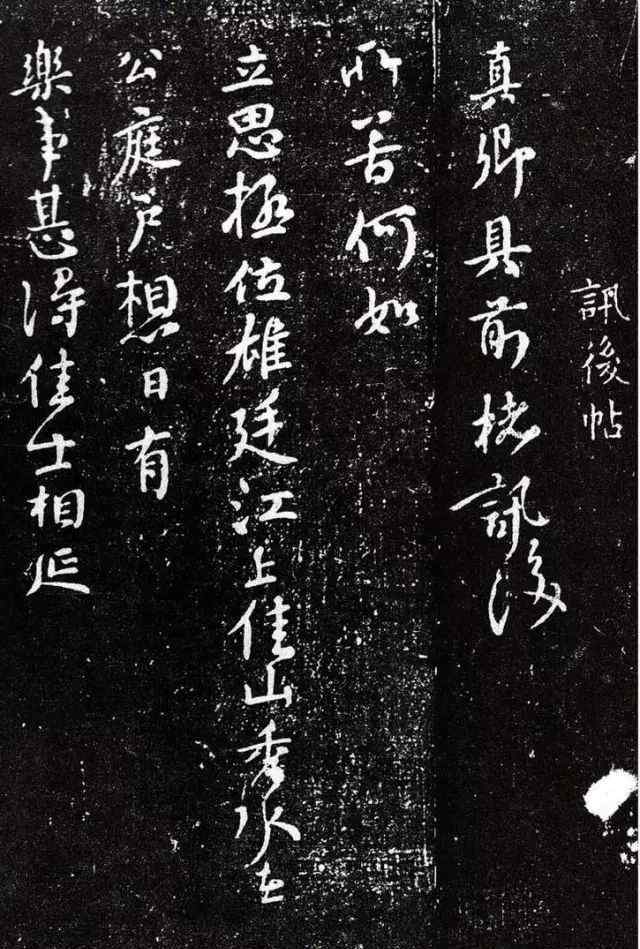 訊後帖
真卿具前楮訊後
所苦何如
立思極位雄廷江上佳山秀水在
公庭戶想日有
樂事甚得佳士相延